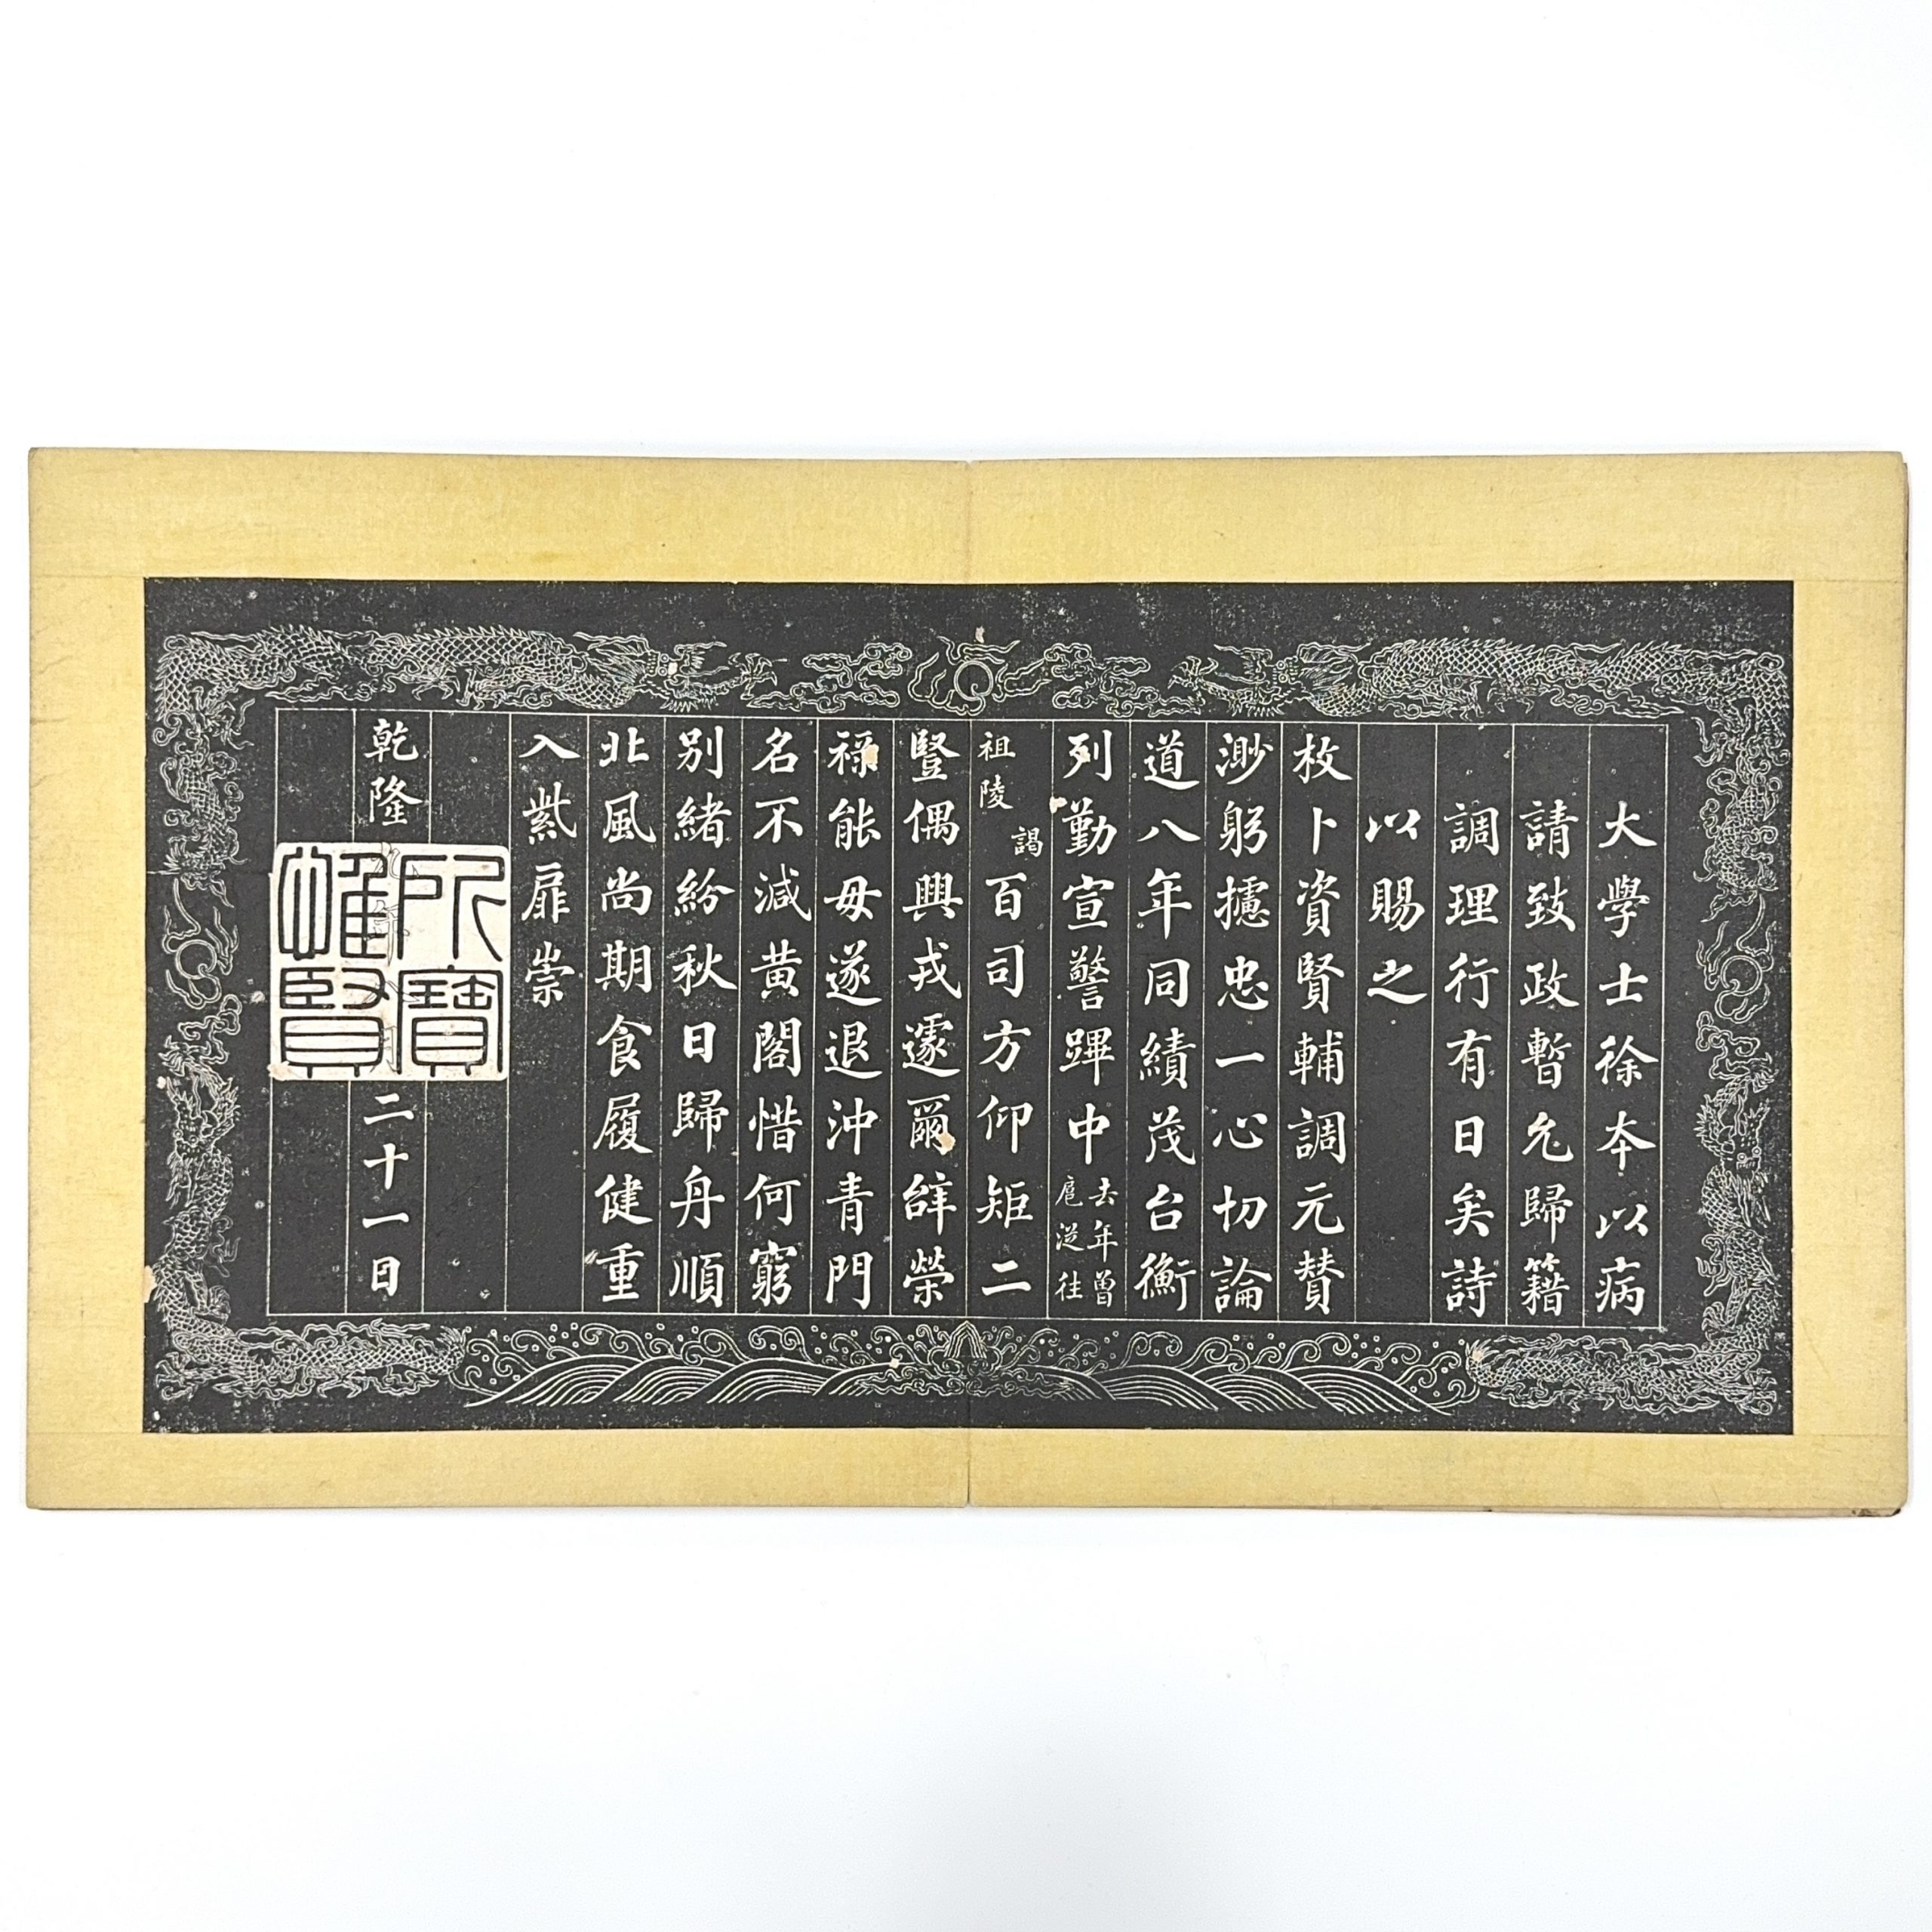 大學士徐本以病
請致政暫允歸籍
調理行有日矣詩
以賜之
枚卜資賢輔調元贊
渺躬攄忠一心切論
道八年同績茂台衡
列勤宣警蹕中
去年曾
扈從往
謁
祖陵
百司方仰矩二
豎偶興戎遽爾辭榮
祿能毋遂退沖青門
名不減黃閣惜何窮
別緒紛秋日歸舟順
北風尚期食履健重
入紫扉崇
乾隆
二十一日
所寶
惟賢